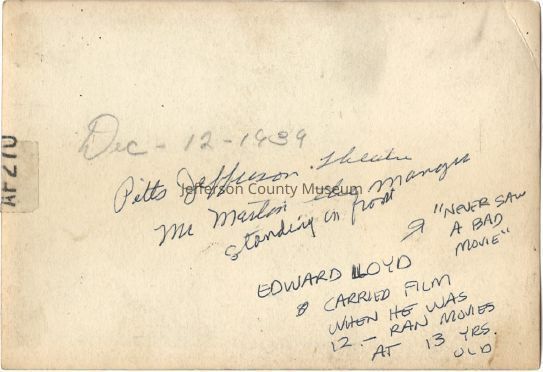 Dec - 12 - 1939
Pitts Jefferson Theatre
Mc Maston the Manger
standing in front
"NEVER SAW
A BAD
MOVIE"
EDWARD LLOYD
CARRIED FILM
WHEN HE WAS
12 - RAN MOVIES
AT 13 YRS.
OLD
Jefferson County Museum